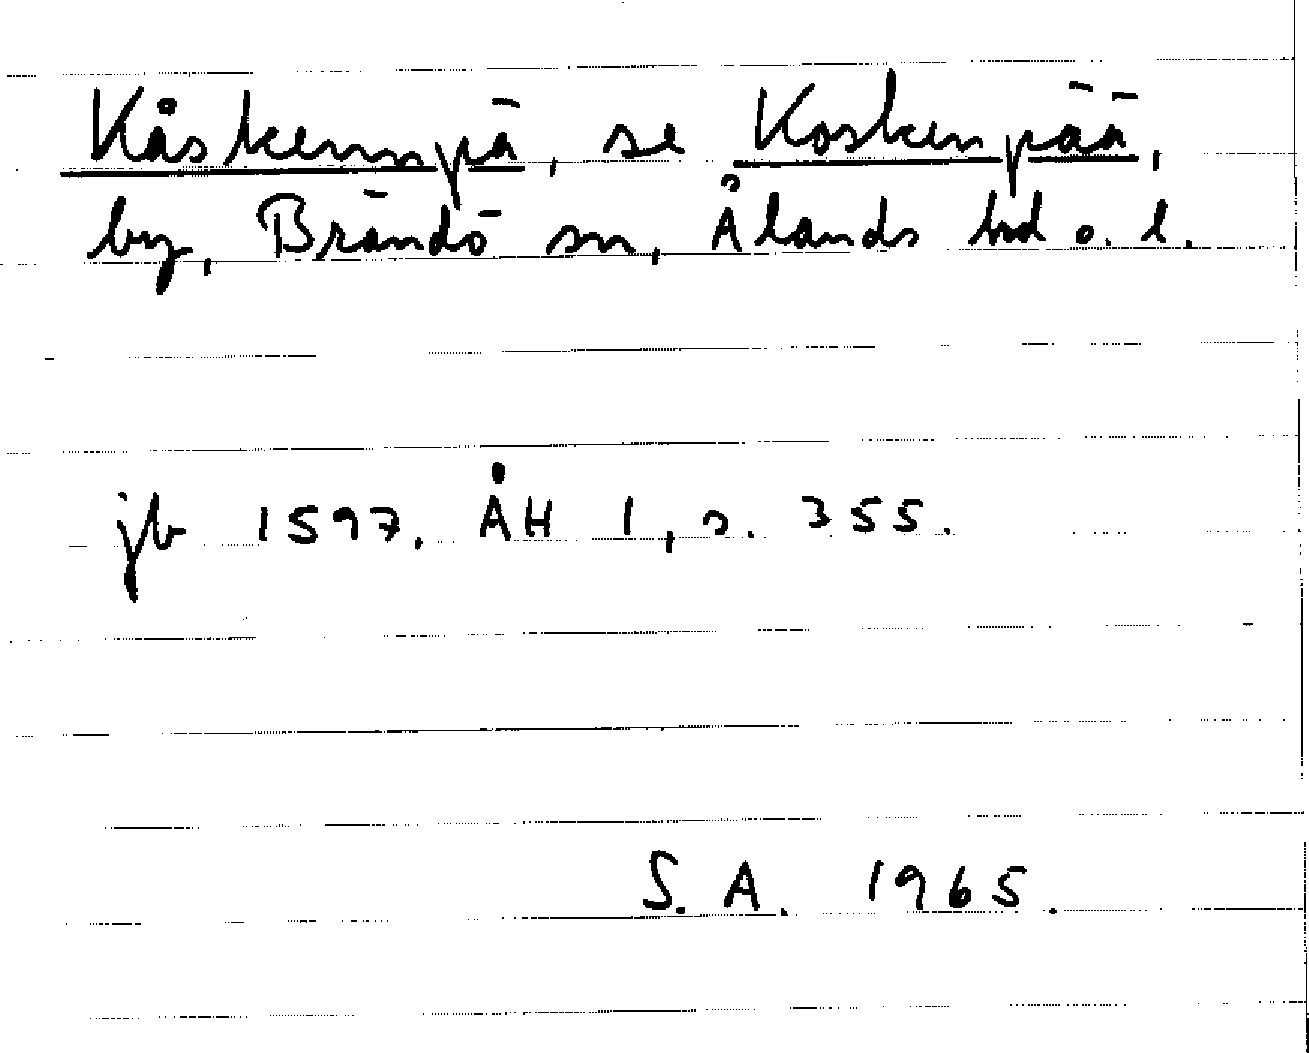 Kåskennpä, se Koskenpää,
by, Brändö sn, Ålands hd o. l.
jb 1597. ÅH 1, s. 355.
S. A. 1965.